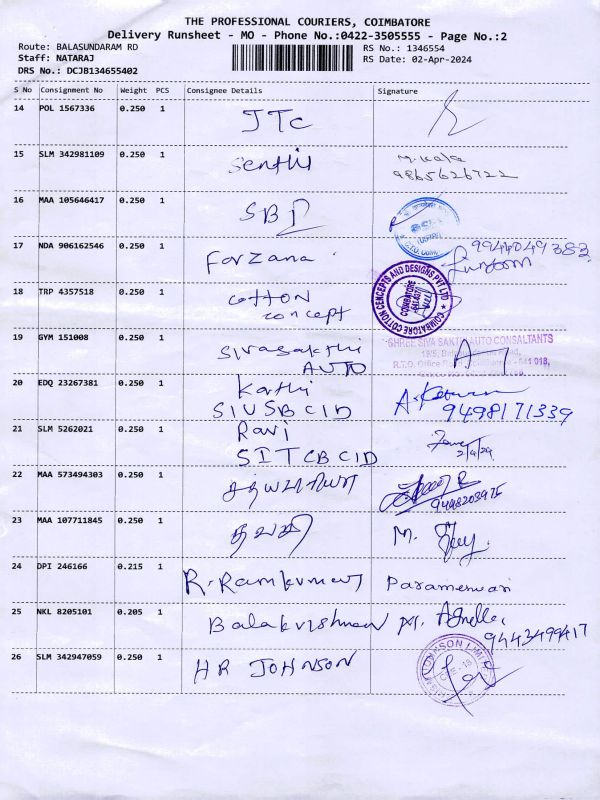 THE PROFESSIONAL COURIERS, COIMBATORE
Delivery Runsheet - MO - Phone No.:0422-3505555 - Page No.:2
Route: BALASUNDARAM RD
RS No.: 1346554
Staff: NATARAJ
RS Date: 02-Apr-2024
DRS No.: DCJB134655402
S No Consignment No Weight PCS Consignee Details Signature
14 POL 1567336 0.250 1 JTC
15 SLM 342981109 0.250 1 Senthil M. Kala
9865626722
16 MAA 105646417 0.250 1 SBI
17 NDA 906162546 0.250 1 Farzana 9944049383
18 TRP 4357518 0.250 1 Cotton
concept
COIMBATORE COTTON CONCEPTS AND DESIGNS PVT LTD
19 GYM 151008 0.250 1 Sivasakthi
AUTO
SHREE SIVA SAKTHI AUTO CONSALTANTS
20 EDQ 23267381 0.250 1 Kathi
SIUSBCID
9498171339
21 SLM 5262021 0.250 1 Ravi
SITCBCID
2/4/24
22 MAA 573494303 0.250 1 சத்யபிரியா
9498203975
23 MAA 107711845 0.250 1 M.
24 DPI 246166 0.215 1 R. Ramkumar Parameswari
25 NKL 8205101 0.205 1 Balakrishnan
9443499417
26 SLM 342947059 0.250 1 HR JOHNSON